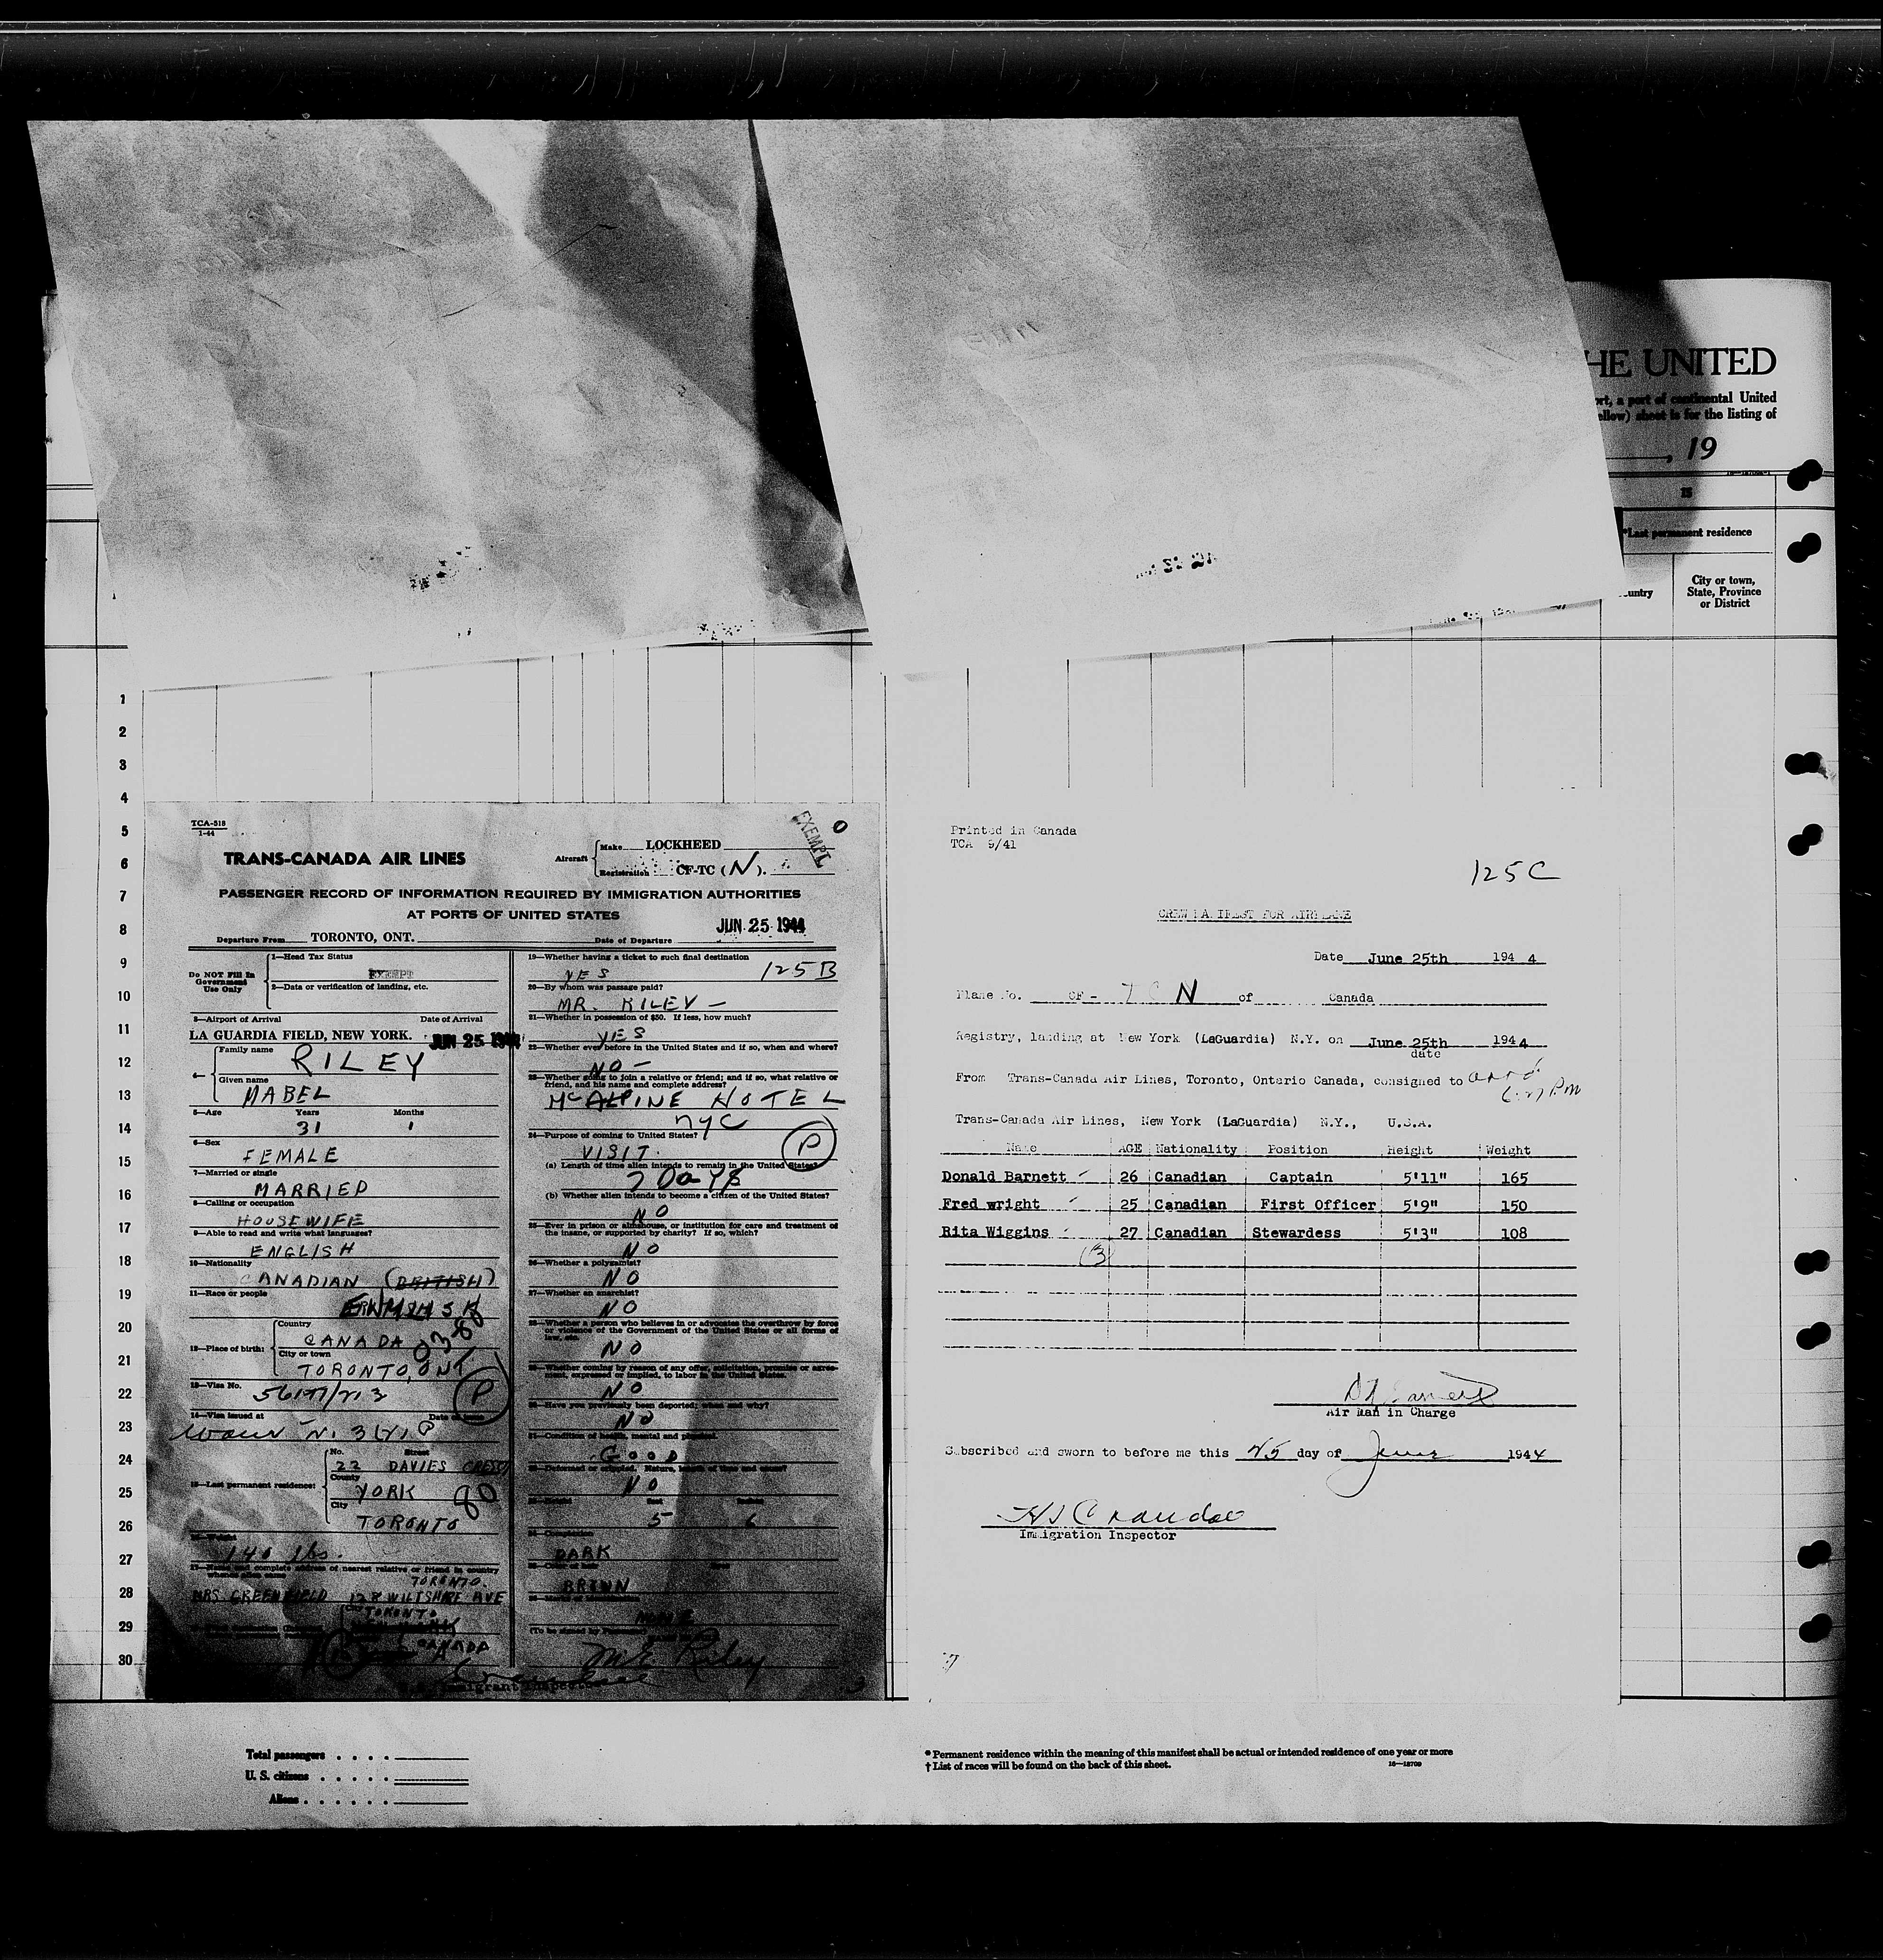 HE UNITED
ort, a part of continental United
ellow) sheet is for the listing of
, 19
15
*Last permanent residence
untry
City or town,
State, Province
or District
1
2
3
4
5
6
7
8
9
10
11
12
13
14
15
16
17
18
19
20
21
22
23
24
25
26
27
28
29
30
TCA-518
1-44
EXEMPT
0
TRANS-CANADA AIR LINES
Aircraft
Make LOCKHEED
Registration CF-TC (N).
PASSENGER RECORD OF INFORMATION REQUIRED BY IMMIGRATION AUTHORITIES
AT PORTS OF UNITED STATES
Departure From TORONTO, ONT. Date of Departure JUN 25 1944
Do NOT Fill In
Government
Use Only
1—Head Tax Status
EXEMPT
2—Data or verification of landing, etc.
3—Airport of Arrival Date of Arrival
LA GUARDIA FIELD, NEW YORK. JUN 25 1944
4—
Family name
RILEY
Given name
MABEL
5—Age Years Months
31 1
6—Sex
FEMALE
7—Married or single
MARRIED
8—Calling or occupation
HOUSEWIFE
9—Able to read and write what languages?
ENGLISH
10—Nationality
CANADIAN (BRITISH)
11—Race or people
12—Place of birth:
Country
CANADA
City or town
TORONTO, ONT
13—Visa No.
P
14—Visa issued at Date of issue
15—Last permanent residence:
No. Street
22 DAVIES CRESC
County
YORK
City
TORONTO
80
16—Weight
140 lbs.
17—Name and complete address of nearest relative or friend in country
whence alien came
TORONTO.
MRS GREENFIELD 128 WILTSHIRE AVE
TORONTO
CANADA
19—Whether having a ticket to such final destination
YES 125B
20—By whom was passage paid?
MR. RILEY —
21—Whether in possession of $50. If less, how much?
YES
22—Whether ever before in the United States and if so, when and where?
NO —
23—Whether going to join a relative or friend; and if so, what relative or
friend, and his name and complete address?
McALPINE HOTEL
NYC
24—Purpose of coming to United States?
VISIT.
P
(a) Length of time alien intends to remain in the United States?
7 Days
(b) Whether alien intends to become a citizen of the United States?
NO
25—Ever in prison or almshouse, or institution for care and treatment of
the insane, or supported by charity? If so, which?
NO
26—Whether a polygamist?
NO
27—Whether an anarchist?
NO
28—Whether a person who believes in or advocates the overthrow by force
or violence of the Government of the United States or all forms of
law, etc.
NO
29—Whether coming by reason of any offer, solicitation, promise or agree-
ment, expressed or implied, to labor in the United States.
NO
30—Have you previously been deported; when and why?
NO
31—Condition of health, mental and physical.
GOOD
NO
33—Height Feet Inches
5 6
34—Complexion
DARK
BROWN
NONE
(To be signed by Passenger)
M E Riley
Printed in Canada
TCA 9/41
125C
CREW MANIFEST FOR AIRPLANE
Date June 25th 1944
Plane No. CF - TCN of Canada
Registry, landing at New York (LaGuardia) N.Y. on June 25th 1944
date
From Trans-Canada Air Lines, Toronto, Ontario Canada, consigned to
Trans-Canada Air Lines, New York (LaGuardia) N.Y., U.S.A.
Name AGE Nationality Position Height Weight
Donald Barnett 26 Canadian Captain 5'11" 165
Fred wright 25 Canadian First Officer 5'9" 150
Rita Wiggins 27 Canadian Stewardess 5'3" 108
(3)
Air Man in Charge
Subscribed and sworn to before me this 25 day of June 1944
Immigration Inspector
Total passengers
U. S. citizens
Aliens
* Permanent residence within the meaning of this manifest shall be actual or intended residence of one year or more
† List of races will be found on the back of this sheet. 16—18709